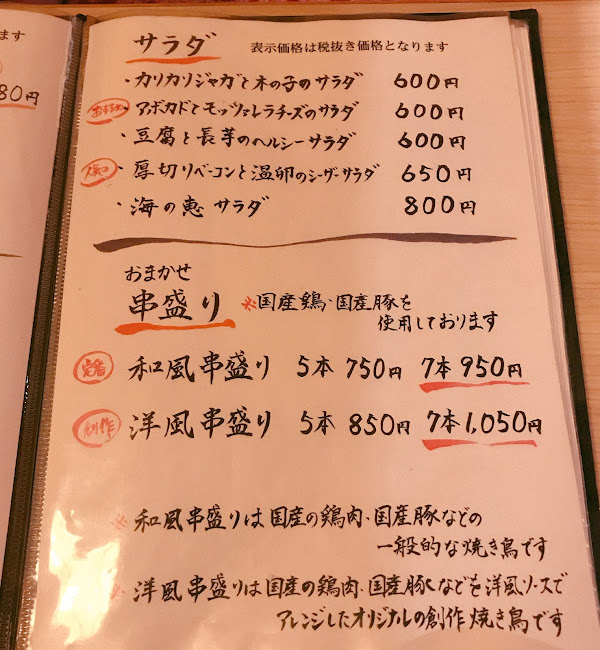 ます
80円
サラダ 表示価格は税抜き価格となります
・カリカリジャガと木の子のサラダ 600円
おすすめ アボカドとモッツァレラチーズのサラダ 600円
・豆腐と長芋のヘルシーサラダ 600円
人気 ・厚切りベーコンと温卵のシーザーサラダ 650円
・海の恵サラダ 800円
おまかせ
串盛り ※国産鶏・国産豚を
使用しております
定番 和風串盛り 5本 750円 7本 950円
創作 洋風串盛り 5本 850円 7本 1,050円
※和風串盛りは国産の鶏肉・国産豚などの
一般的な焼き鳥です
※洋風串盛りは国産の鶏肉・国産豚などを洋風ソースで
アレンジしたオリジナルの創作焼き鳥です